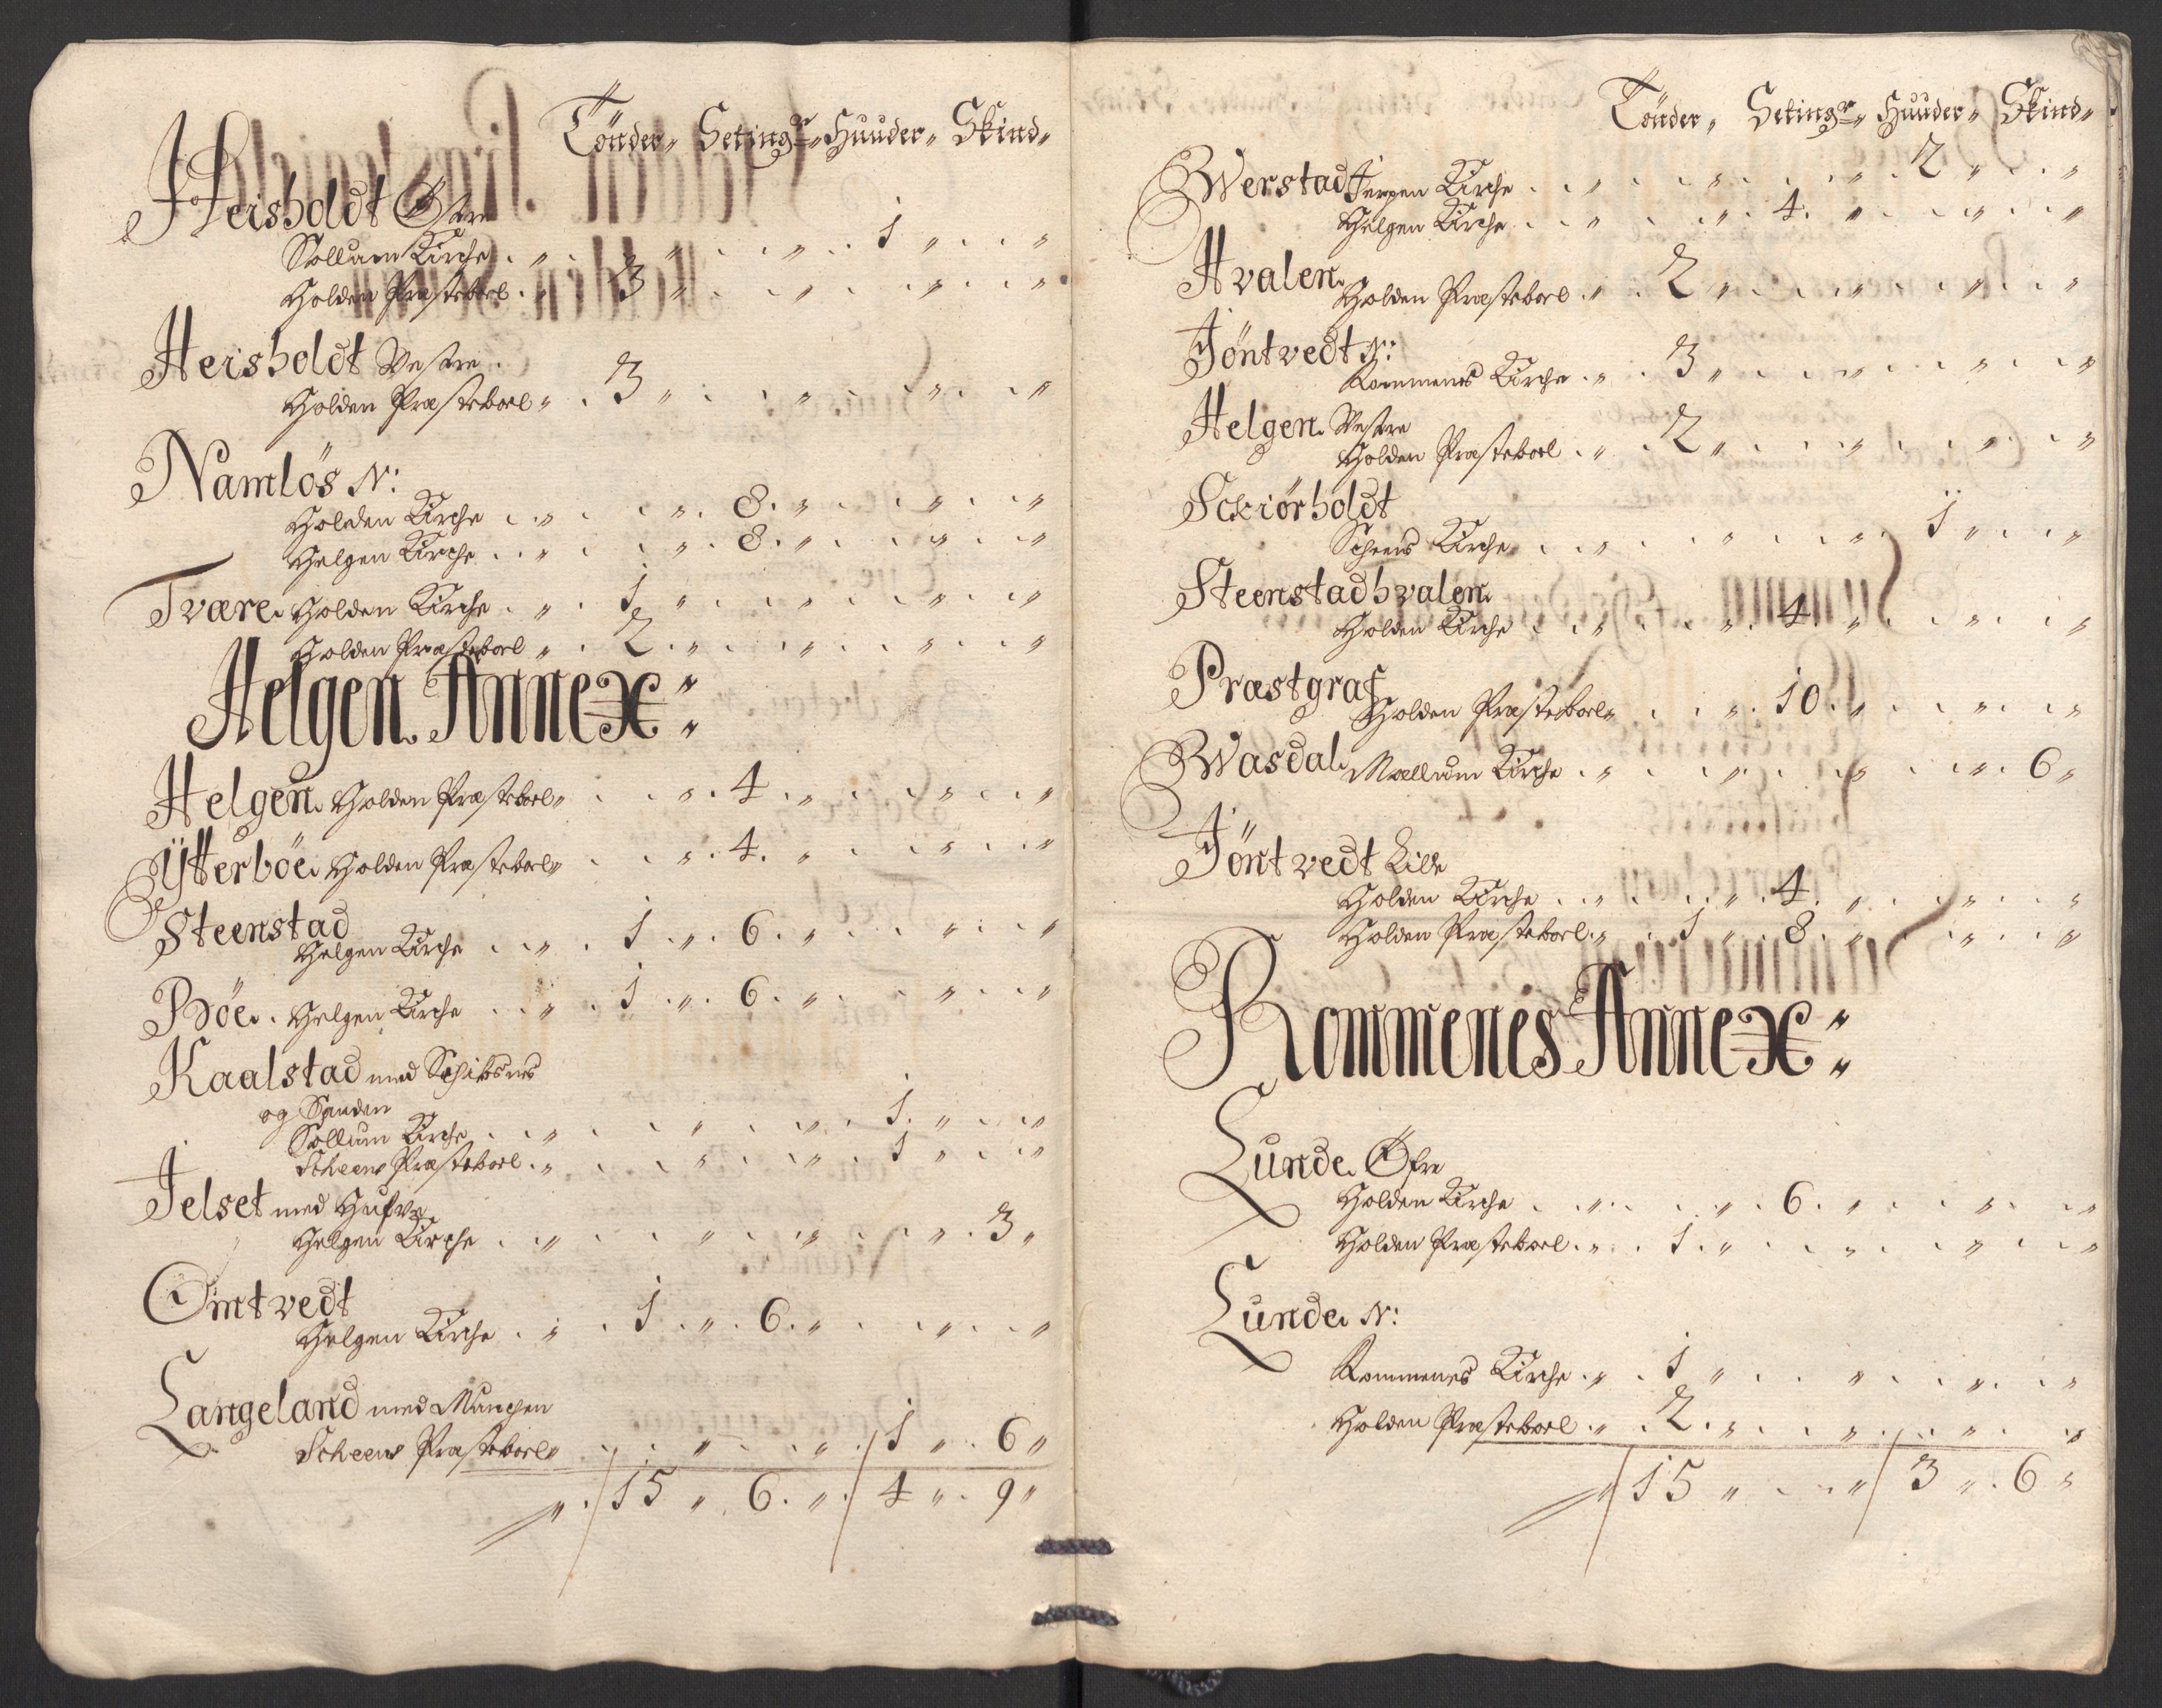 Tönder„ Setingr„ Huuder„ Skind„
Heisholdt Østre
Sollum Kirche . „ . . „ . . „ . 1 „ . . „
Holden Præsteboel . „ . 3 „ . . „ . . „ . . „
Heisholdt Vestre .
Holden Præsteboel „ . 3 „ . . „ . . „ . . „
Namlös N:
Holden Kirche . . „ . . „ . 8 . „ . . „ . . „
Helgen Kirche . . „ . . „ . 8 . „ . . „ . . „
Tvære Holden Kirche . „ . 1 „ . . „ . . „ . . „
Holden Præsteboel „ . 2 . „ . . „ . . „ . . „
Helgen Annex:
Helgen Holden Præsteboel „ . . „ . 4 . „ . . „ . . „
Ytterböe Holden Præsteboel „ . . „ . 4 . „ . . „ . . „
Steenstad
Helgen Kirche . . „ . 1 . „ . 6 . „ . . „ . . „
Böe . Helgen Kirche . . „ . 1 . „ . 6 . „ . . „ . . „
Kaalstad med Schibsnes
og Sanden
Sollum Kirche . . „ . . „ . . „ . 1 . „ . . „
Scheens Præsteboel . „ . . „ . . „ . 1 „ . . „
Jelset med Hufve
Helgen Kirche . . „ . . „ . . „ . . „ . 3 „
Omtvedt
Helgen Kirche . „ . 1 . „ . 6 . „ . . „ . . „
Langeland med Munchen
Scheens Præsteboel „ . . „ . . „ . 1 „ . 6 „
„ . 15 „ . 6 . „ . 4 „ . 9 „
Tönder „ Setingr„ Huuder „ Skind„
Werstad Jerpen Kirche . . „ . . „ . . „ . 2 „ . . „
Helgen Kirche . . „ . . „ . 4 . „ . . „ . . „
Hvalen
Holden Præsteboel . „ . 2 „ . . „ . . „ . . „
Jöntvedt N:
Rommenes Kirche . „ . 3 „ . . „ . . „ . . „
Helgen Vestre
Holden Præsteboel . „ . 2 „ . . „ . . „ . . „
Sckiörholdt
Scheens Kirche . . „ . . „ . . „ . 1 „ . . „
Steenstadhvalen
Holden Kirche . . „ . . „ . 4 . „ . . „ . . „
Præstgraf
Holden Præsteboel „ . . „ . 10 . „ . . „ . . „
Wasdal Mællum Kirche . „ . . „ . . „ . . „ . 6 „
Jöntvedt Lille
Holden Kirche . . „ . . „ . 4 . „ . . „ . . „
Holden Præsteboel . „ . 1 „ . 8 . „ . . „ . . „
Rommenes Annex:
Lunde Øfre
Holden Kirche . . „ . . „ . 6 . „ . . „ . . „
Holden Præsteboel . „ . 1 . „ . . „ . . „ . . „
Lunde N:
Rommenes Kirche . „ . 1 „ . . „ . . „ . . „
Holden Præsteboel . „ . 2 . „ . . „ . . „ . . „
„ 15 „ . . „ 3 „ . 6 „